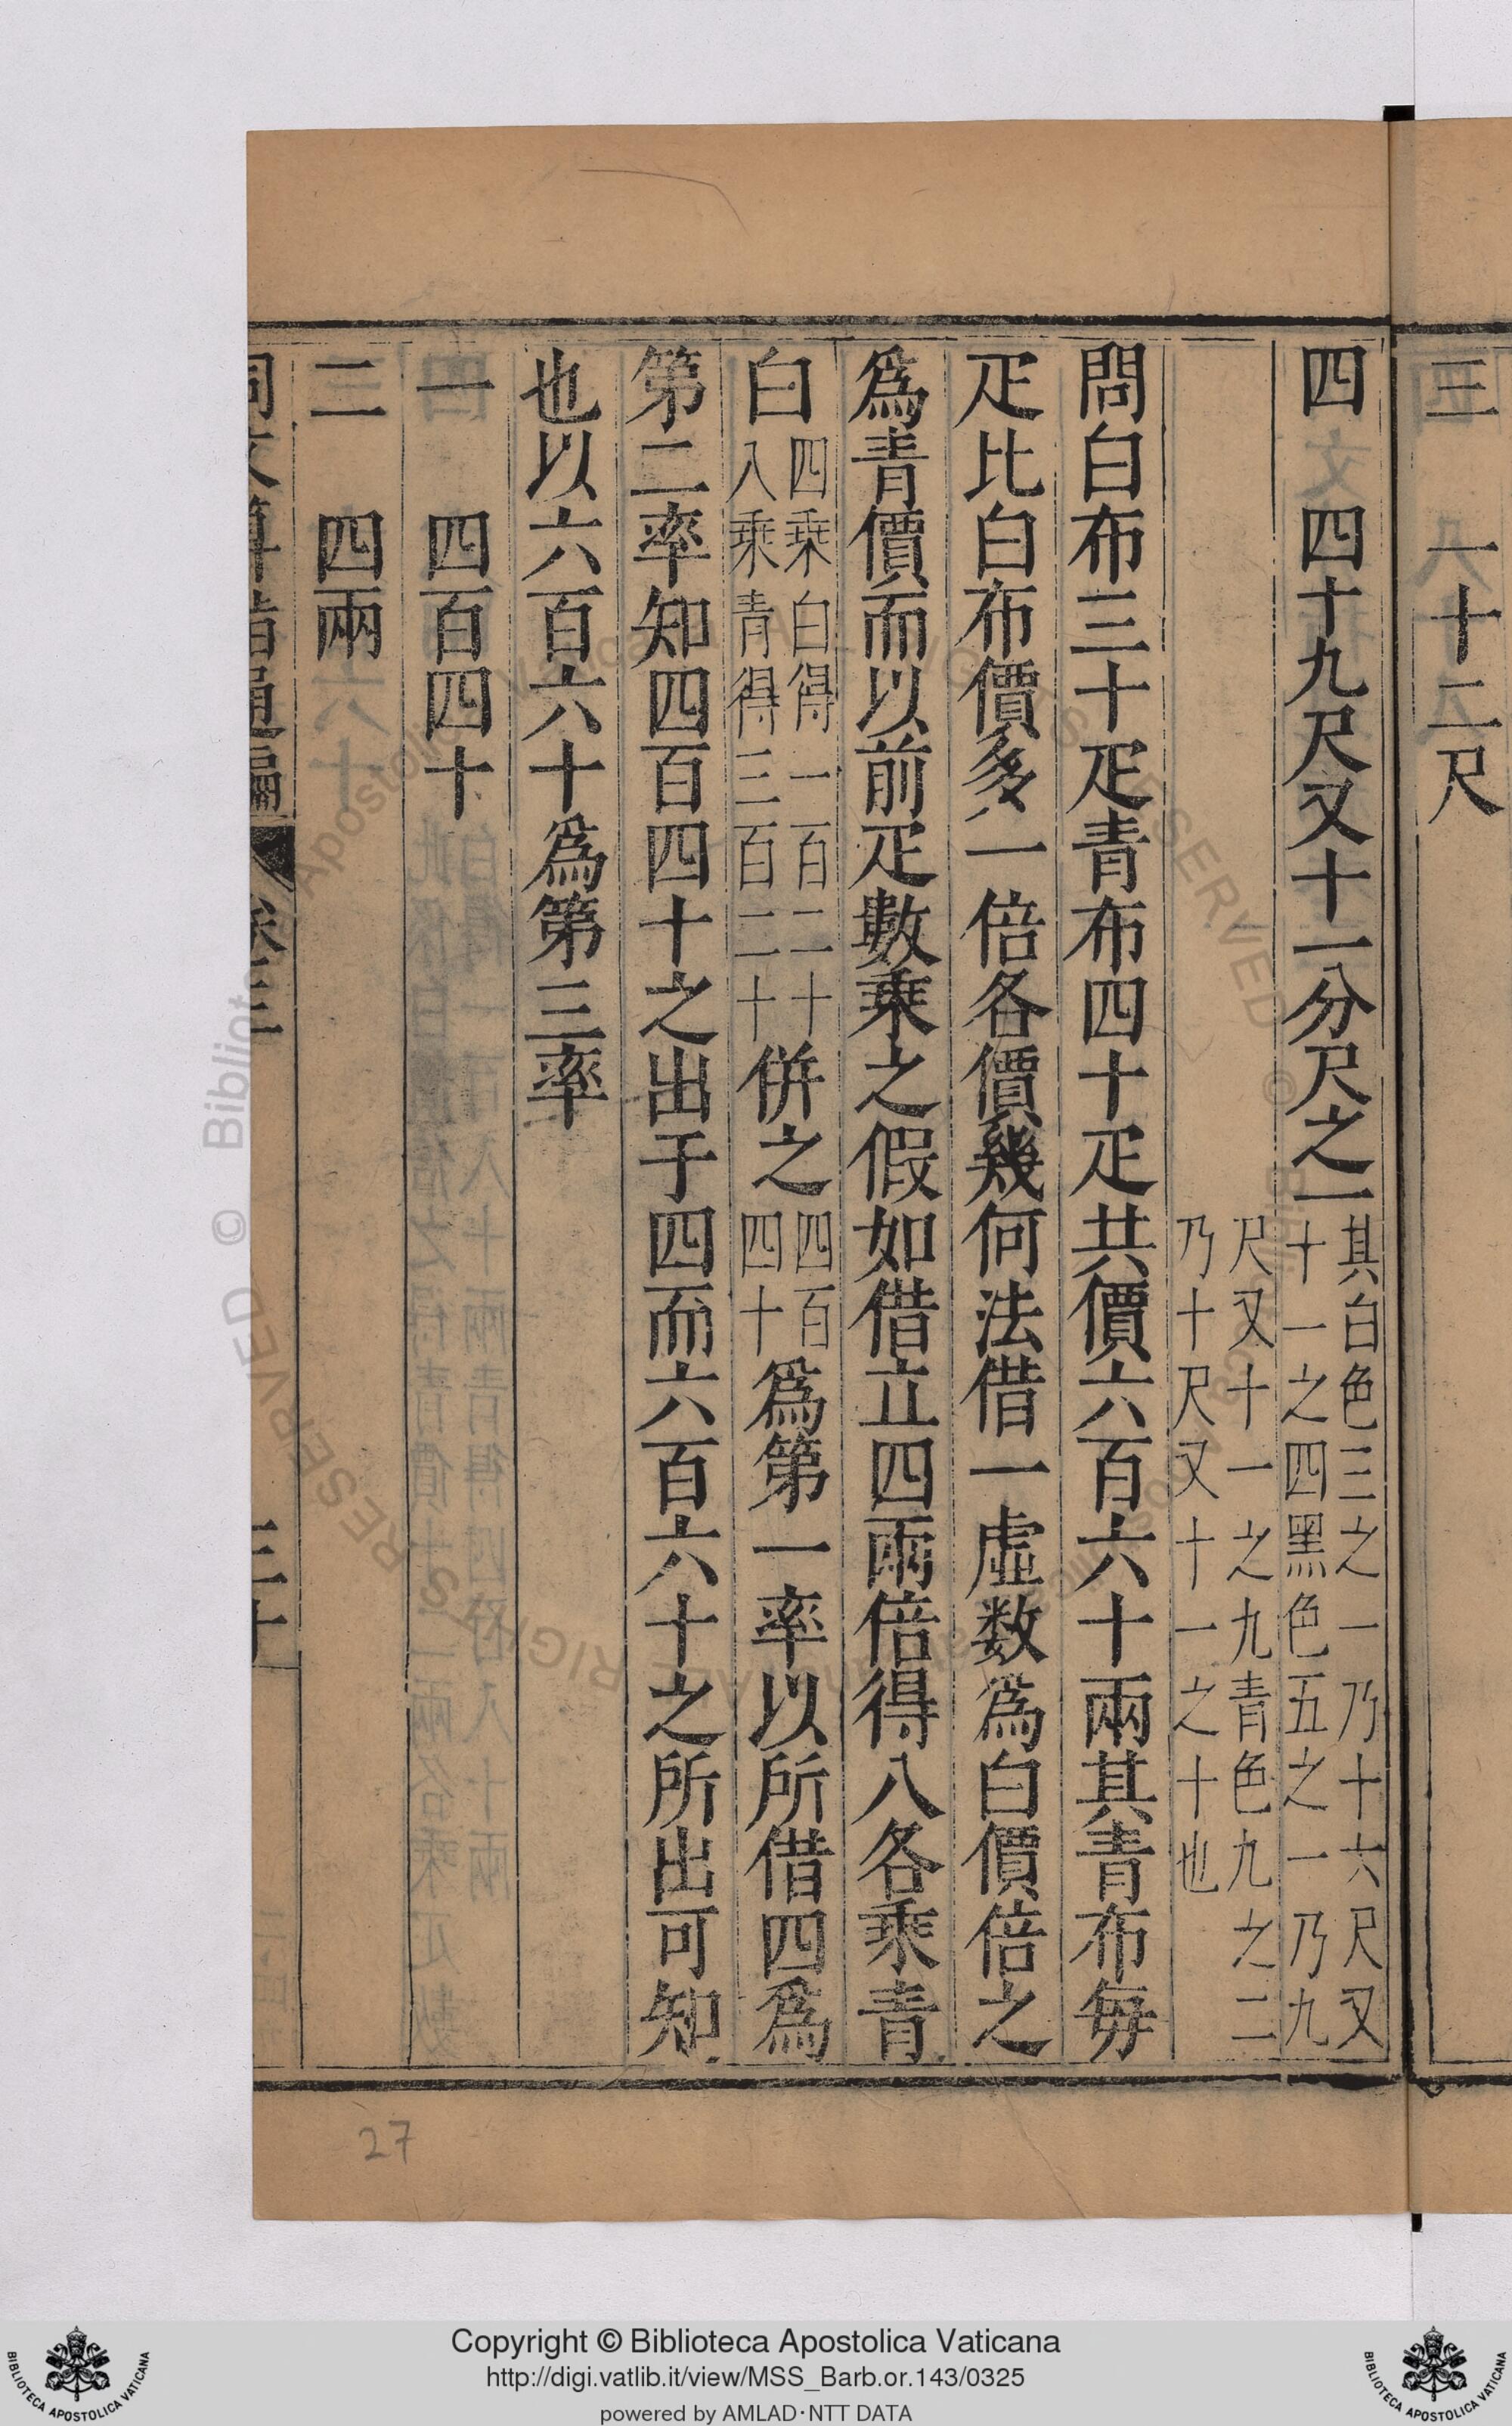 三 一十二尺
四 四十九尺又十一分尺之一 其白色三之一乃十六尺又
十一之四黑色五之一乃九
尺又十一之九青色九之二
乃十尺又十一之十也
問白布三十疋青布四十疋共價六百六十兩其青布每
疋比白布價多一倍各價幾何法借一虛数為白價倍之
為青價而以前疋數乘之假如借立四兩倍得八各乘青
白 四乘白得一百二十
八乘青得三百二十 併之 四百
四十 為第一率以所借四為
第二率知四百四十之出于四而六百六十之所出可知
也以六百六十為第三率
一 四百四十
二 四兩
同文算指通編 卷三 三十
27
Copyright © Biblioteca Apostolica Vaticana
http://digi.vatlib.it/view/MSS_Barb.or.143/0325
powered by AMLAD·NTT DATA
BIBLIOTECA APOSTOLICA VATICANA
BIBLIOTECA APOSTOLICA VATICANA